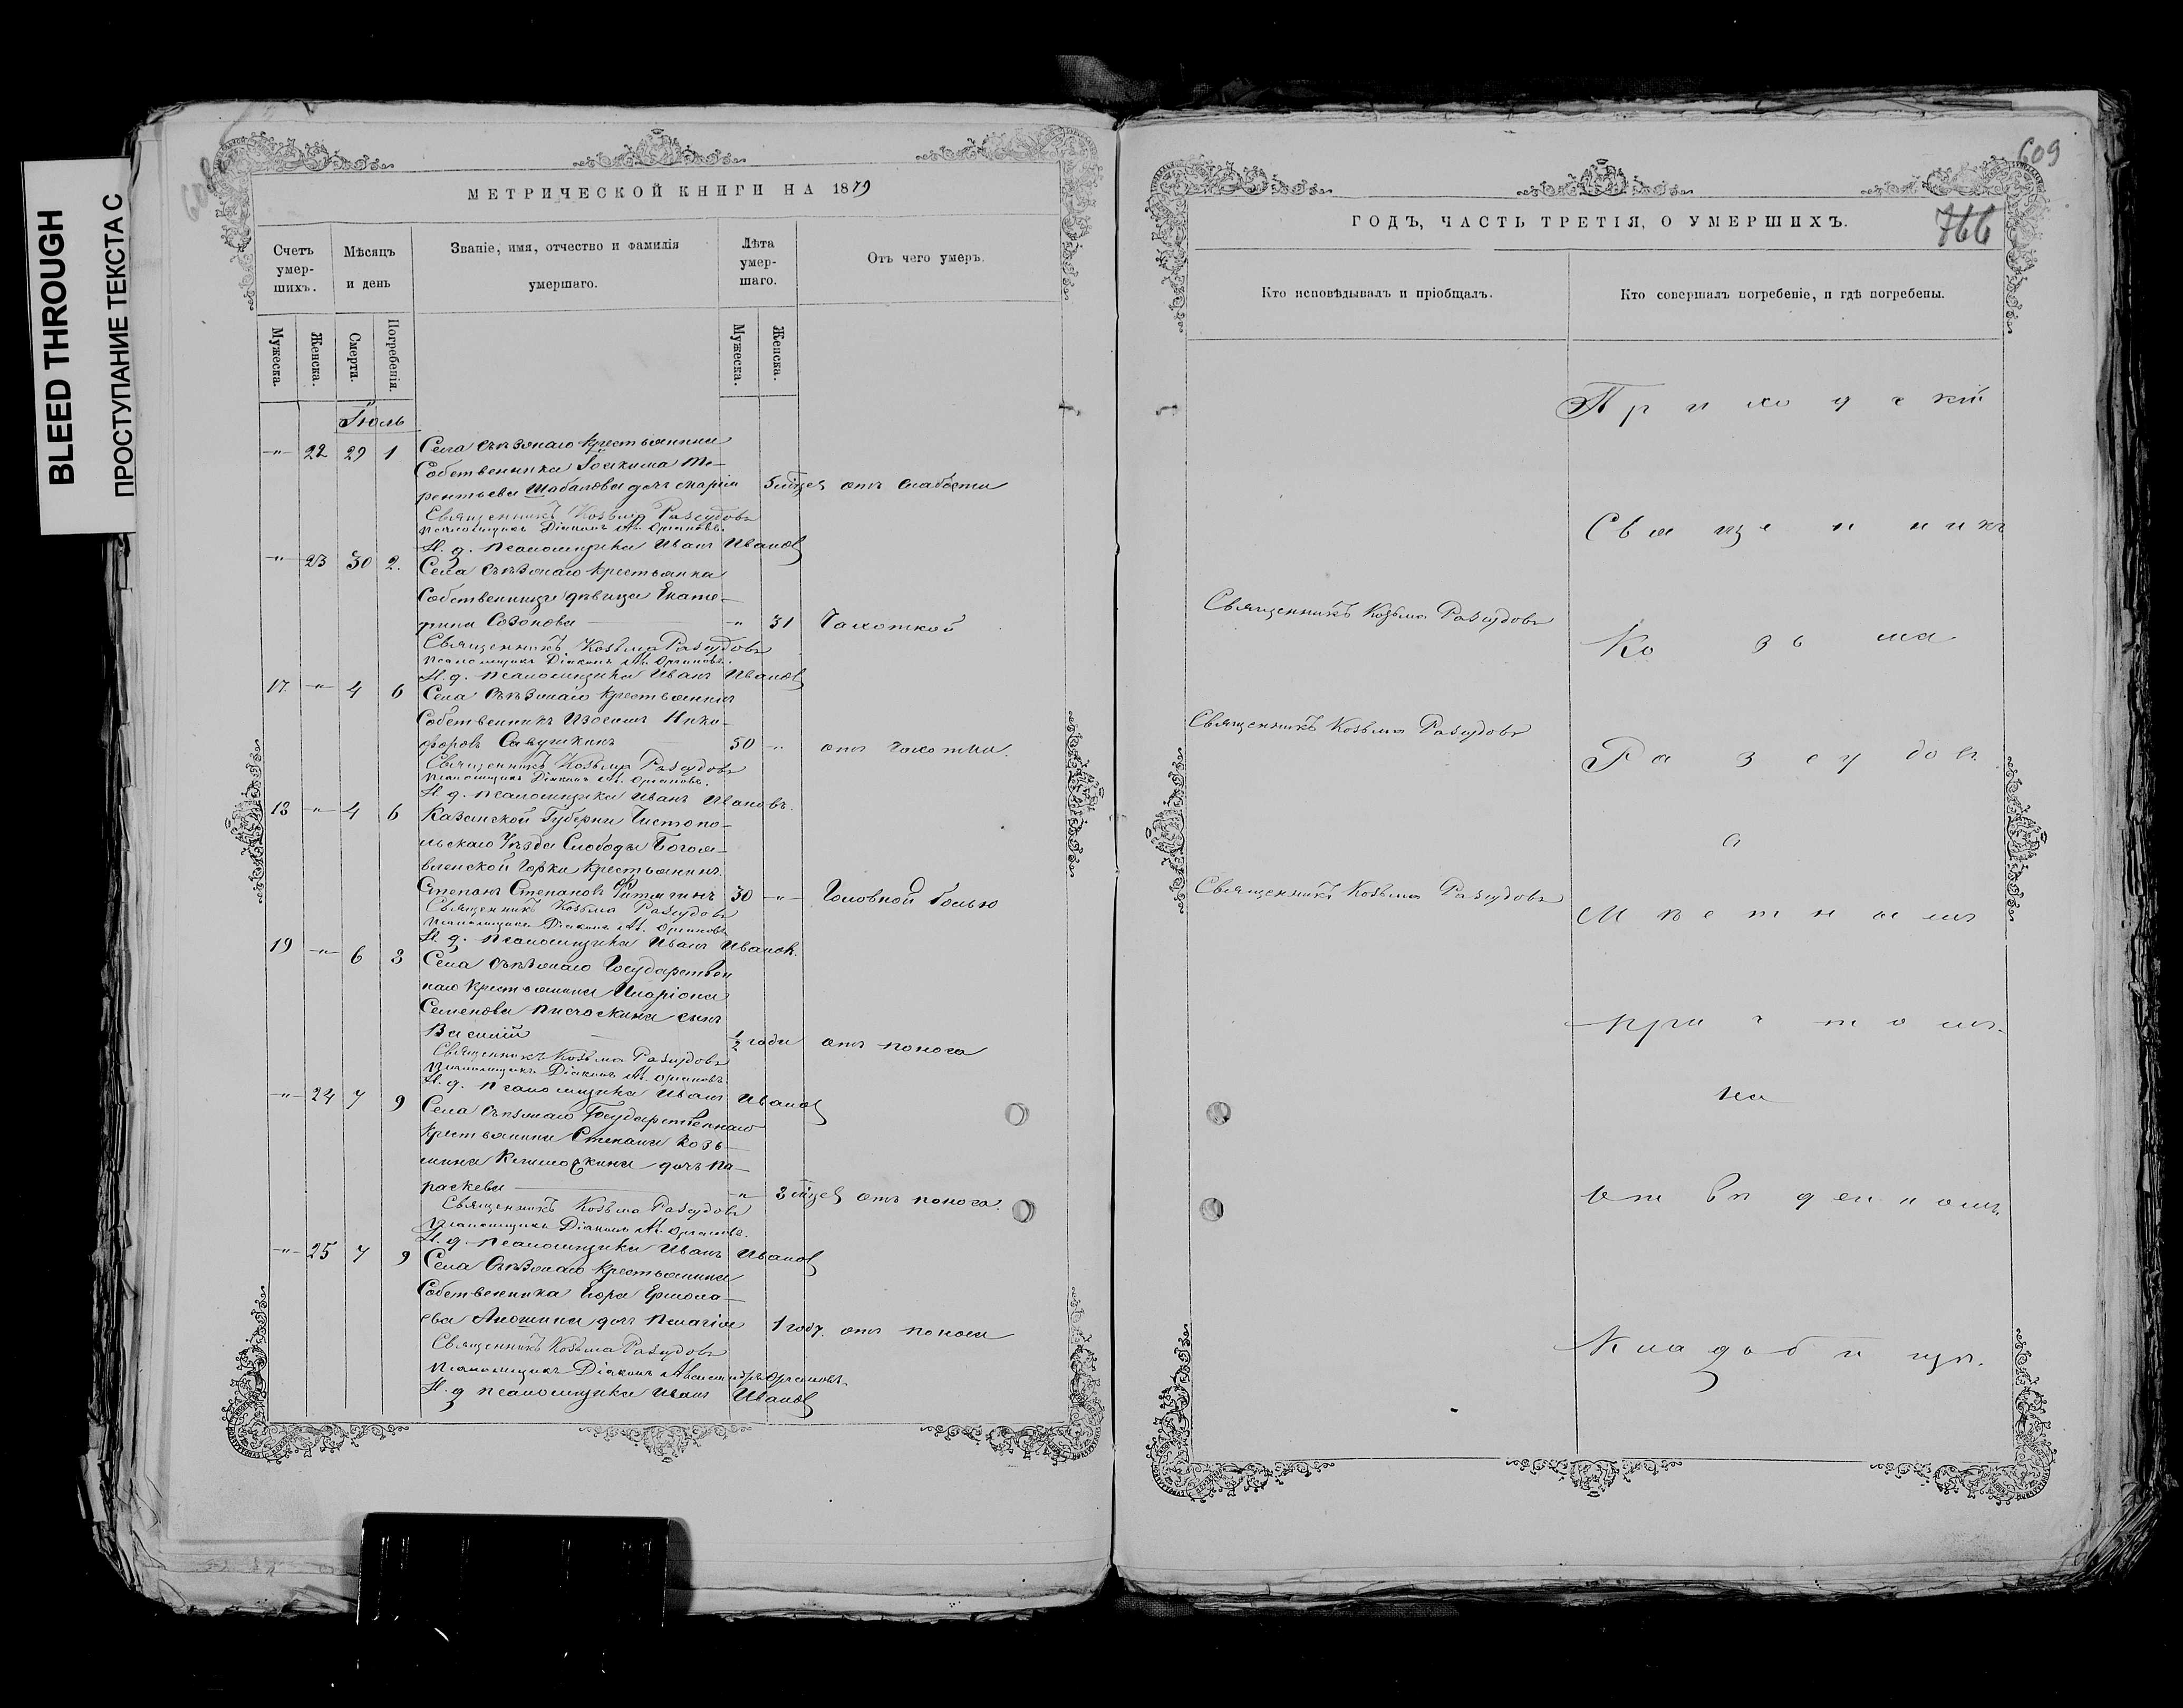 BLEED THROUGH
ПРОСТУПАНИЕ ТЕКСТА С
МЕТРИЧЕСКОЙ КНИГИ НА 1879
Счетъ умер-шихъ.
Мѣсяцъ и день
Званіе, имя, отчество и фамилія умершаго.
Лѣта умер-шаго.
Отъ чего умеръ.
Мужеска.
Женска.
Смерти.
Погребенія.
Мужеска.
Женска.
Іюль
-"- 22 29 1 Села Съѣзжаго крестьянина
Собственника Іоакима Те-
рентьева Шабалова дочь Марія 5 мѣсяц отъ слабости
Священникъ Козьма Разсудовъ
Псаломщикъ Діаконъ Ав.
И. д. псаломщика Иванъ Ивановъ
-"- 23 30 2. Села Съѣзжаго крестьянка
Собственница дѣвица Екате-
рина Созонова -"- 31 Чахоткой
Священникъ Козьма Разсудовъ
Псаломщикъ Діаконъ Ав.
И. д. псаломщика Иванъ Ивановъ
17 -"- 4 6 Села Съѣзжаго крестьянинъ
Собственникъ Изосимъ Ники-
форовъ Савушкинъ 50 -"- отъ чахотки.
Священникъ Козьма Разсудовъ
Псаломщикъ Діаконъ Ав.
И. д. псаломщика Иванъ Ивановъ.
18 -"- 4 6 Казанской Губерніи Чистопо-
льскаго Уѣзда Слободы Богоя-
вленской Горки крестьянинъ.
Степанъ Степановъ 30 -"- Головной болью
Священникъ Козьма Разсудовъ
Псаломщикъ Діаконъ Ав.
И. д. псаломщика Иванъ Ивановъ.
19 -"- 6 8 Села Съѣзжаго Государствен
наго крестьянина Иларіона
Семенова сынъ
Василій 1/2 года отъ поноса
Священникъ Козьма Разсудовъ
Псаломщикъ Діаконъ Ав.
И. д. псаломщика Иванъ Ивановъ
-"- 24 7 9 Села Съѣзжаго Государственнаго
крестьянина Степана Козь-
мина дочь Па-
раскева -"- 3 мѣсяц отъ поноса.
Священникъ Козьма Разсудовъ
Псаломщикъ Діаконъ Ав.
И. д. псаломщика Иванъ Ивановъ
-"- 25 7 9 Села Съѣзжаго крестьянина
Собственника Егора Ермола-
ева Аношина дочь Пелагія 1 году. отъ поноса
Священникъ Козьма Разсудовъ
Псаломщикъ Діаконъ
И. д псаломщика Иванъ Ивановъ
609
766
ГОДЪ, ЧАСТЬ ТРЕТІЯ, О УМЕРШИХЪ.
Кто исповѣдывалъ и пріобщалъ.
Кто совершалъ погребеніе, и гдѣ погребены.
Приходскій
Священникъ
Священникъ Козьма Разсудовъ
Козьма
Священникъ Козьма Разсудовъ
Разсудовъ
с
Священникъ Козьма Разсудовъ
Мѣстнымъ
причтомъ.
на
отведенномъ
Кладбищѣ.